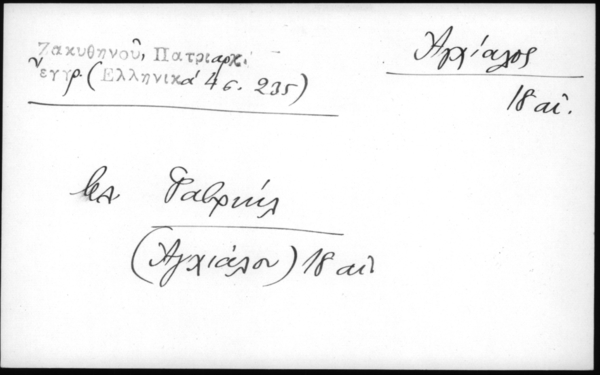 Ζακυθηνοῦ, Πατριαρχ.
ἔγγρ. (Ἑλληνικά 4 σ. 235)
Ἀγχίαλος
18 αἰ.
βλ Γαβριήλ
(Ἀγχιάλου) 18 αἰ